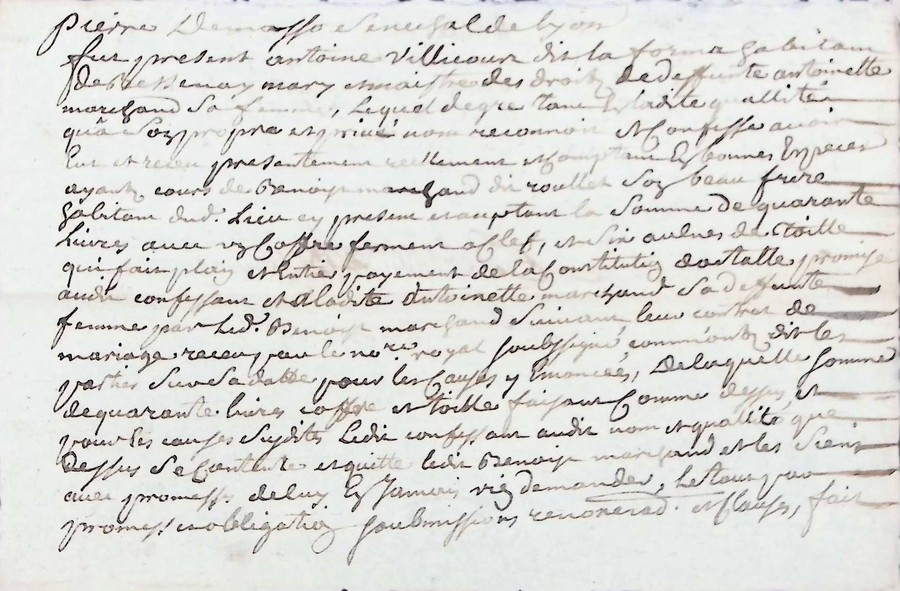 pierre Demasso Senechal de lyon
fut present antoine Villicour dit la forma habitant
de Bessenay mary et maistre des droitz de deffunte antoinette
marchand sa femme, Lequel de gre tant En ladite quallité
qu'à son propre et privé nom reconnoit et Confesse avoir
Eut et receu presentement reellement et Comptant En bonnes Especes
ayantz cours de Benoist marchand dit roullet son beau frere
habitant dud. Lieu cy present et acceptant la Somme de quarante
Livres avec un Coffre ferment a Clef, et Six aulnes de Toille
qui fait plain et Entier payement de la Constitution dostalle promise
audit confessant et a ladite Antoinette marchand sa deffunte
femme par Led. Benoist marchand Suivant leur contrat de
mariage receu par le nore. royal soubssigné comme ont dit les
parties Sur Sa datte pour les Causes y Enoncées, De laquelle somme
de quarante livres coffre et toille faisant Comme dessus, et
pour les causes Susdites Ledit confessant audit nom et qualité que
dessus Se Contente et quitte ledit Benoist marchand et les Siens
avec promesse de luy En Jamais rien demander, Le tout par
promess. et obligation soubmissions renonciad. et Clauses, fait